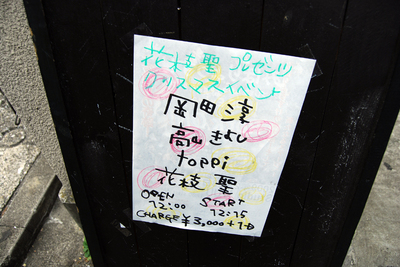 花枝聖 プレゼンツ
クリスマスイベント
岡田 淳
高山 きよし
toppi
花枝 聖
OPEN START
12:00 12:15
CHARGE ¥3,000+1D